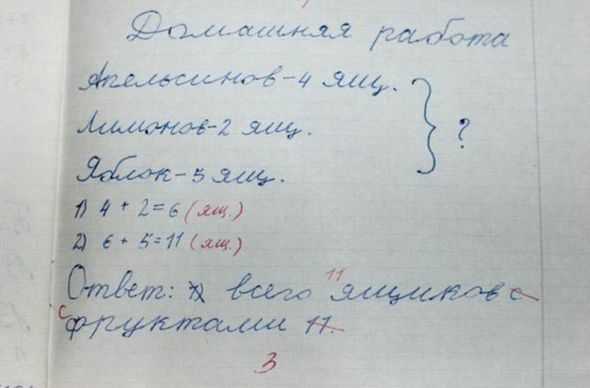 Домашняя работа
Апельсинов-4 ящ.
Лимонов-2 ящ.
Яблок-5 ящ.
?
1) 4 + 2=6 (ящ.)
2) 6 + 5=11 (ящ.)
Ответ: всего 11 ящиков с
с фруктами 11.
3